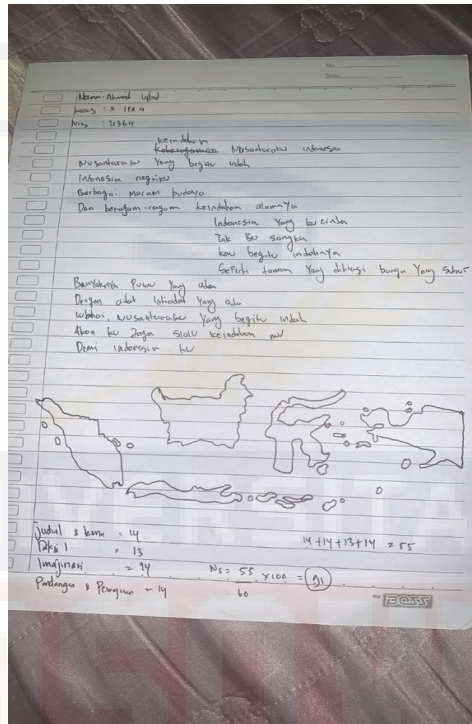 No.
Date
Nama : Ahmad Iqbal
Kelas : X IPA 4
Nis : 21364
Keindahan
Keberagaman Nusantaraku indonesia
Nusantaraku Yang begitu indah
Indonesia negriku
Berbagai macam budaya
Dan beragam-ragam keindahan alamnya
Indonesia Yang ku cinta
Tak ku sangka
kau begitu indahnya
Seperti taman Yang dihiasi bunga Yang subur
Banyaknya Pulau Yang ada
Dengan adat istiadat Yang ada
Wahai Nusantaraku Yang begitu indah
Akan ku Jaga slalu keindahan mu
Demi indonesia ku
Judul & tema = 14
Diksi = 13
Imajinasi = 14
Pandangan & Perasaan = 14
14 + 14 + 13 + 14 = 55
Ns = 55 x 100 = 91
60
BOSS